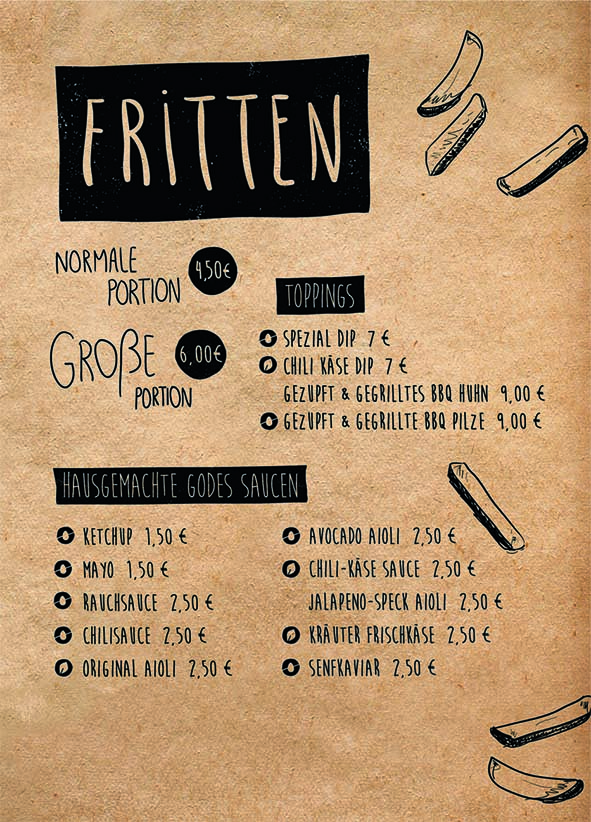 FRiTTEN
NORMALE
PORTION
4,50€
GROßE
PORTION
6,00€
TOPPINGS
SPEZIAL DIP 7 €
CHILI KÄSE DIP 7 €
GEZUPFT & GEGRILLTES BBQ HUHN 9,00 €
GEZUPFT & GEGRILLTE BBQ PILZE 9,00 €
HAUSGEMACHTE GODES SAUCEN
KETCHUP 1,50 €
MAYO 1,50 €
RAUCHSAUCE 2,50 €
CHILISAUCE 2,50 €
ORIGINAL AIOLI 2,50 €
AVOCADO AIOLI 2,50 €
CHILI-KÄSE SAUCE 2,50 €
JALAPENO-SPECK AIOLI 2,50 €
KRÄUTER FRISCHKÄSE 2,50 €
SENFKAVIAR 2,50 €